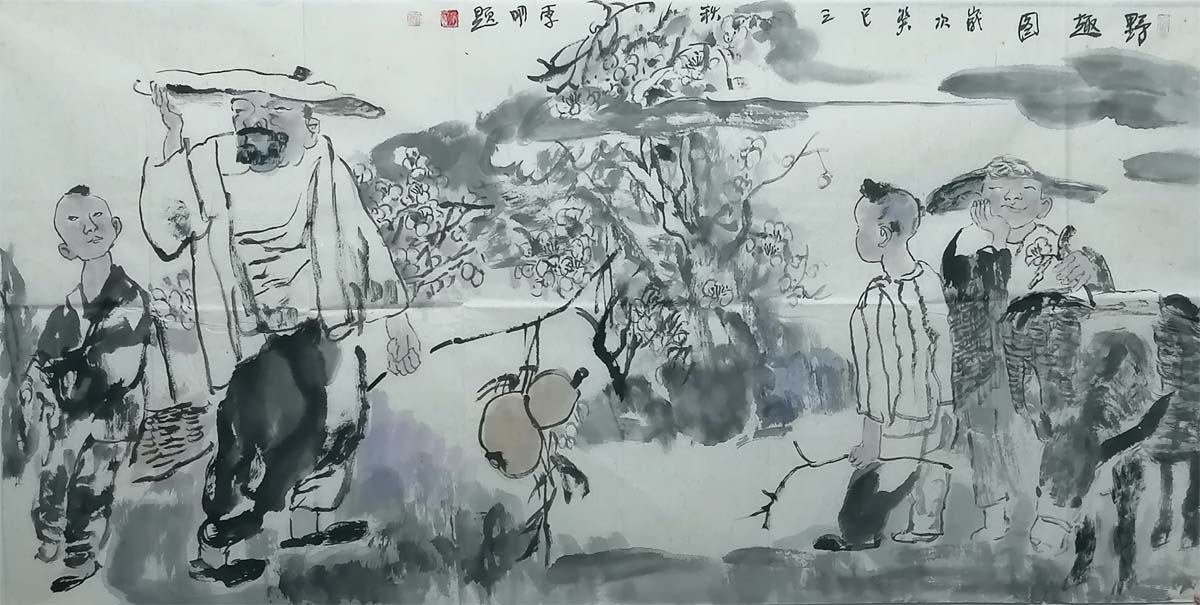 野趣图岁次癸巳三秋明题